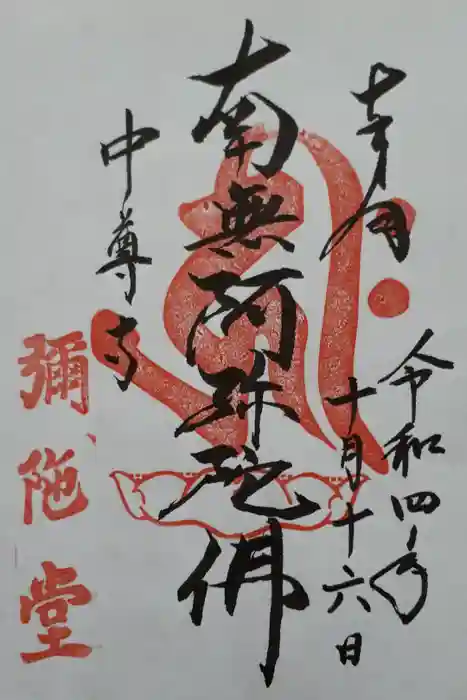 令和四年
十月十六日
南無阿弥陀佛
中尊寺
彌陁堂